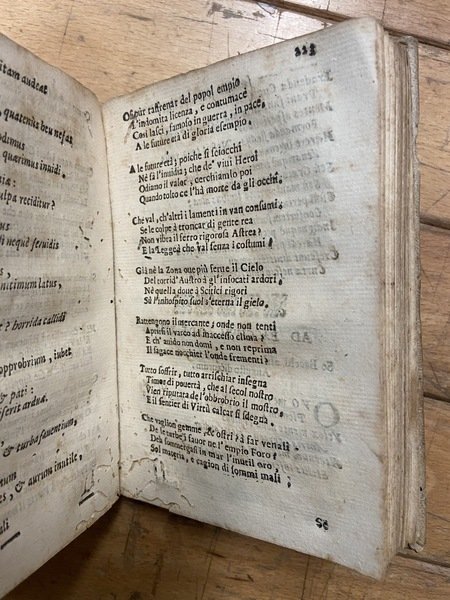 itam audeat
quatenus heu nefas
odimus
quærimus invidi.
niæ:
ulpa reciditur?
nundi
s nequè fervidis
nitimum latus,
? horrida callidi
opprobrium, iubet
& pati:
serit arduæ.
& turba faventium,
es, & aurum inutile,
ali
223
O
A raffrenar del popol empio
L'indomita licenza, e contumace
Così lasci, famoso in guerra, in pace,
A le future età di gloria esempio.
A le future età; poiche sì sciocchi
Nè fà l'inuidia; che de' viui Heroi
Odiamo il valor, cerchiamlo poi
Quando tolto ce l'hà morte da gli occhi.
Che val, ch'altri i lamenti in van consumi;
Se le colpe à troncar di gente rea
Non vibra il ferro rigorosa Astrea?
E la Legge à che val senza i costumi?
Già nè la Zona oue più ferue il Cielo
Del torrid'Austro à gl'infocati ardori,
Nè quella doue à Scitici rigori
Sù l'inhospito suol s'eterna il gielo,
Rattengono il mercante; onde non tenti
Aprirsi il varco ad inaccesso clima:
E ch' auido non domi, e non reprima
Il sagace nocchier l'onde frementi?
Tutto soffrir, tutto arrischiar insegna
Timor di pouertà, che al secol nostro
Vien riputata de l'obbrobrio il mostro,
E il sentier di Virtù calcar si sdegna.
Che vaglion gemme, & ostri? à far venali
De le turbe i fauor ne l'empio Foro?
Deh sommergasi in mar l'inutil oro,
Sol materia, e cagion di sommi mali;